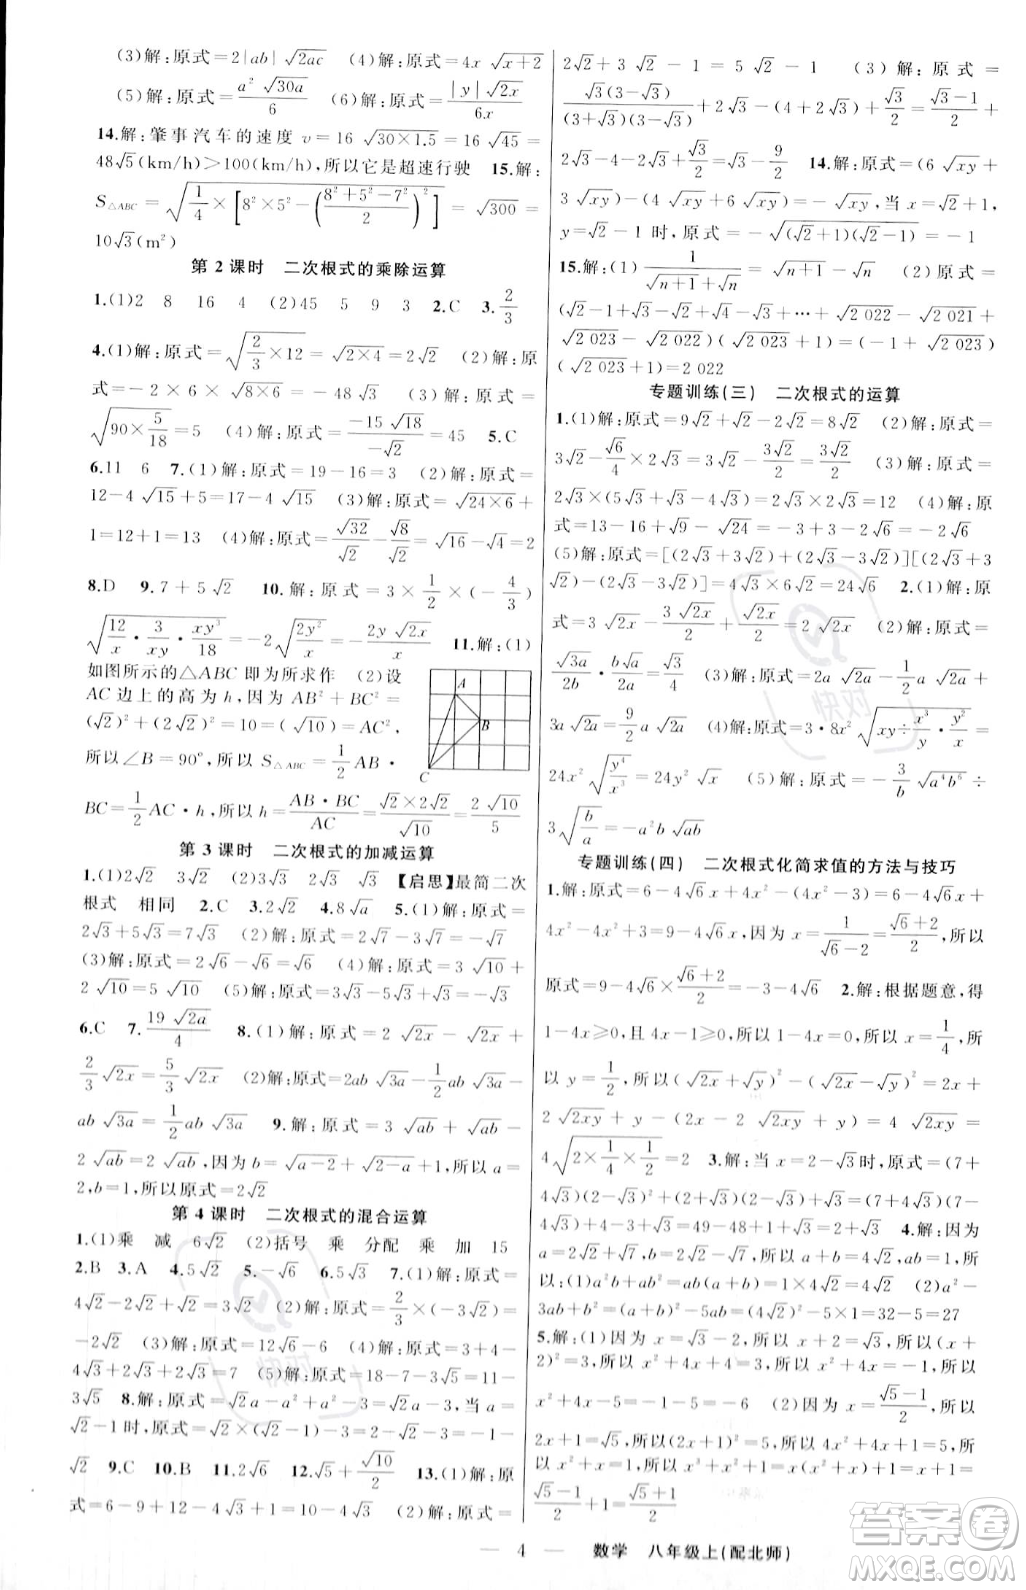 (3)解:原式=2|ab|√2ac  (4)解:原式=4x√x+2
(5)解:原式=a²√30a/6  (6)解:原式=|y|√2x/6x
14.解:肇事汽车的速度 v=16√30×1.5=16√45=
48√5(km/h)>100(km/h),所以它是超速行驶  15.解:
S△ABC=√1/4×[8²×5²-((8²+5²-7²)/2)²]=√300=
10√3(m²)
第2课时 二次根式的乘除运算
1.(1)2 8 16 4 (2)45 5 9 3  2.C  3.2/3
4.(1)解:原式=√2/3×12=√2×4=2√2  (2)解:原
式=-2×6×√8×6=-48√3  (3)解:原式=
√90×5/18=5  (4)解:原式=-15√18/-√2=45  5.C
6.11 6  7.(1)解:原式=19-16=3  (2)解:原式=
12-4√15+5=17-4√15  (3)解:原式=√24×6+
1=12+1=13  (4)解:原式=√32/√2-√8/√2=√16-√4=2
8.D  9.7+5√2  10.解:原式=3×1/2×(-4/3)×
√12/x·3/xy·xy³/18=-2√2y²/x=-2y√2x/x  11.解:(1)
如图所示的△ABC即为所求作  (2)设
AC边上的高为h,因为AB²+BC²=
(√2)²+(2√2)²=10=(√10)²=AC²,
所以∠B=90°,所以S△ABC=1/2AB·
BC=1/2AC·h,所以h=AB·BC/AC=√2×2√2/√10=2√10/5
A
B
C
第3课时 二次根式的加减运算
1.(1)2√2 3√2 (2)3√3 2√3 √3 【启思】最简二次
根式 相同  2.C  3.2√2  4.8√a  5.(1)解:原式=
2√3+5√3=7√3  (2)解:原式=2√7-3√7=-√7
(3)解:原式=2√6-√6=√6  (4)解:原式=3√10+
2√10=5√10  (5)解:原式=3√3-5√3+√3=-√3
6.C  7.19√2a/4  8.(1)解:原式=2√2x-√2x+
2/3√2x=5/3√2x  (2)解:原式=2ab√3a-1/2ab√3a-
ab√3a=1/2ab√3a  9.解:原式=3√ab-2√ab+√ab=
2√ab,因为√2-a+√a-2=b-1,所以a=
2,b=1,所以原式=2√2
第4课时 二次根式的混合运算
1.(1)乘 减 6√2 (2)括号 乘 分配 乘 加 15
2.B  3.A  4.5√2  5.-√6  6.5√3  7.(1)解:原式=
4√2-2√2+√2=3√2  (2)解:原式=2/3×(-3√2)=
-2√2  (3)解:原式=12√6-√6  (4)解:原式=3+4-
4√3+2√3+2√3=7  (5)解:原式=18-7-11-3√5=
-3√5  8.解:原式=√2a-√a²+a²=√2a-a,当a=
√2-1时,原式=√2×(√2-1)-(√2-1)=2-√2-√2+1=3-2√2
9.C  10.B  11.2√6  12.√5+√10/2  13.(1)解:原
式=6-9+12-4√3+1=10-4√3  (2)解:原式=
2√2+3√2-1=5√2-1  (3)解:原式=
√3(3-√3)/(3+√3)(3-√3)+2√3-(4+2√3)+√3/2=√3-1/2+
2√3-4-2√3+√3/2=√3-9/2  14.解:原式=(6√xy+
3√xy)-(4√xy+6√xy)=-√xy,当x=√2+1,
y=√2-1时,原式=-√(√2+1)(√2-1)=-1
15.解:(1)1/√n+1+√n=√n+1-√n  (2)原式=
(√2-1+√3-√2+√4-√3+…+√2022-√2021+
√2023-√2022)×(√2023+1)=(-1+
√2023)(√2023+1)=2022
专题训练(三) 二次根式的运算
1.(1)解:原式=9√2+√2-2√2=8√2  (2)解:原式=
3√2-√6/4×2√3=3√2-3√2/2=3√2/2  (3)解:原式=
2√3×(5√3+√3-4√3)=2√3×2√3=12  (4)解:原
式=13-16+√9-√24=-3+3-2√6=-2√6
(5)解:原式=[(2√3+3√2)+(2√3-3√2)][(2√3+3
√2)-(2√3-3√2)]=4√3×6√2=24√6  2.(1)解:原
式=3√2x-3√2x/2-2√2x=-√2x/2  (2)解:原式=
√3a/2b·b√2a/√3a=√2a/2  (3)解:原式=2a√2a-1/2a√2a+
3a√2a=9/2a√2a  (4)解:原式=3·8x²√xy÷x³/y·y²/x=
24x²√y⁴/x³=24y²√x  (5)解:原式=-3/b√a⁴b⁶÷
3√b/a=-a²b√ab
专题训练(四) 二次根式化简求值的方法与技巧
1.解:原式=6-4√6x+4x²-(4x²-3)=6-4√6x+
4x²-4x²+3=9-4√6x,因为x=1/√6-2=√6+2/2,所以
原式=9-4√6×√6+2/2=-3-4√6  2.解:根据题意,得
1-4x≥0,且4x-1≥0,所以1-4x=0,所以x=1/4,所
以y=1/2,所以(√2x+√y)²-(√2x-√y)²=2x+
2√2xy+y-(2x-2√2xy+y)=4√2xy=
4√2×1/4×1/2=2  3.解:当x=2-√3时,原式=(7+
4√3)(2-√3)²+(2+√3)(2-√3)+√3=(7+4√3)(7-
4√3)+4-3+√3=49-48+1+√3=2+√3  4.解:因为
a=2√2+√3,b=2√2-√3,所以a+b=4√2,ab=5,所
以:(1)a²b+ab²=ab(a+b)=5×4√2=20√2  (2)a²-
3ab+b²=(a+b)²-5ab=(4√2)²-5×1=32-5=27
5.解:(1)因为x=√3-2,所以x+2=√3,所以(x+
2)²=3,所以x²+4x+4=3,所以x²+4x=-1,所以
x²+4x-5=-1-5=-6  (2)因为x=√5-1/2,所以
2x+1=√5,所以(2x+1)²=5,所以x²+x=1,所以
x³+x²+1=x(x²+x)+1=x+1=
√5-1/2+1=√5+1/2
4
数学 八年级上(配北师)
快对
快对
答案卷
MXQE.COM